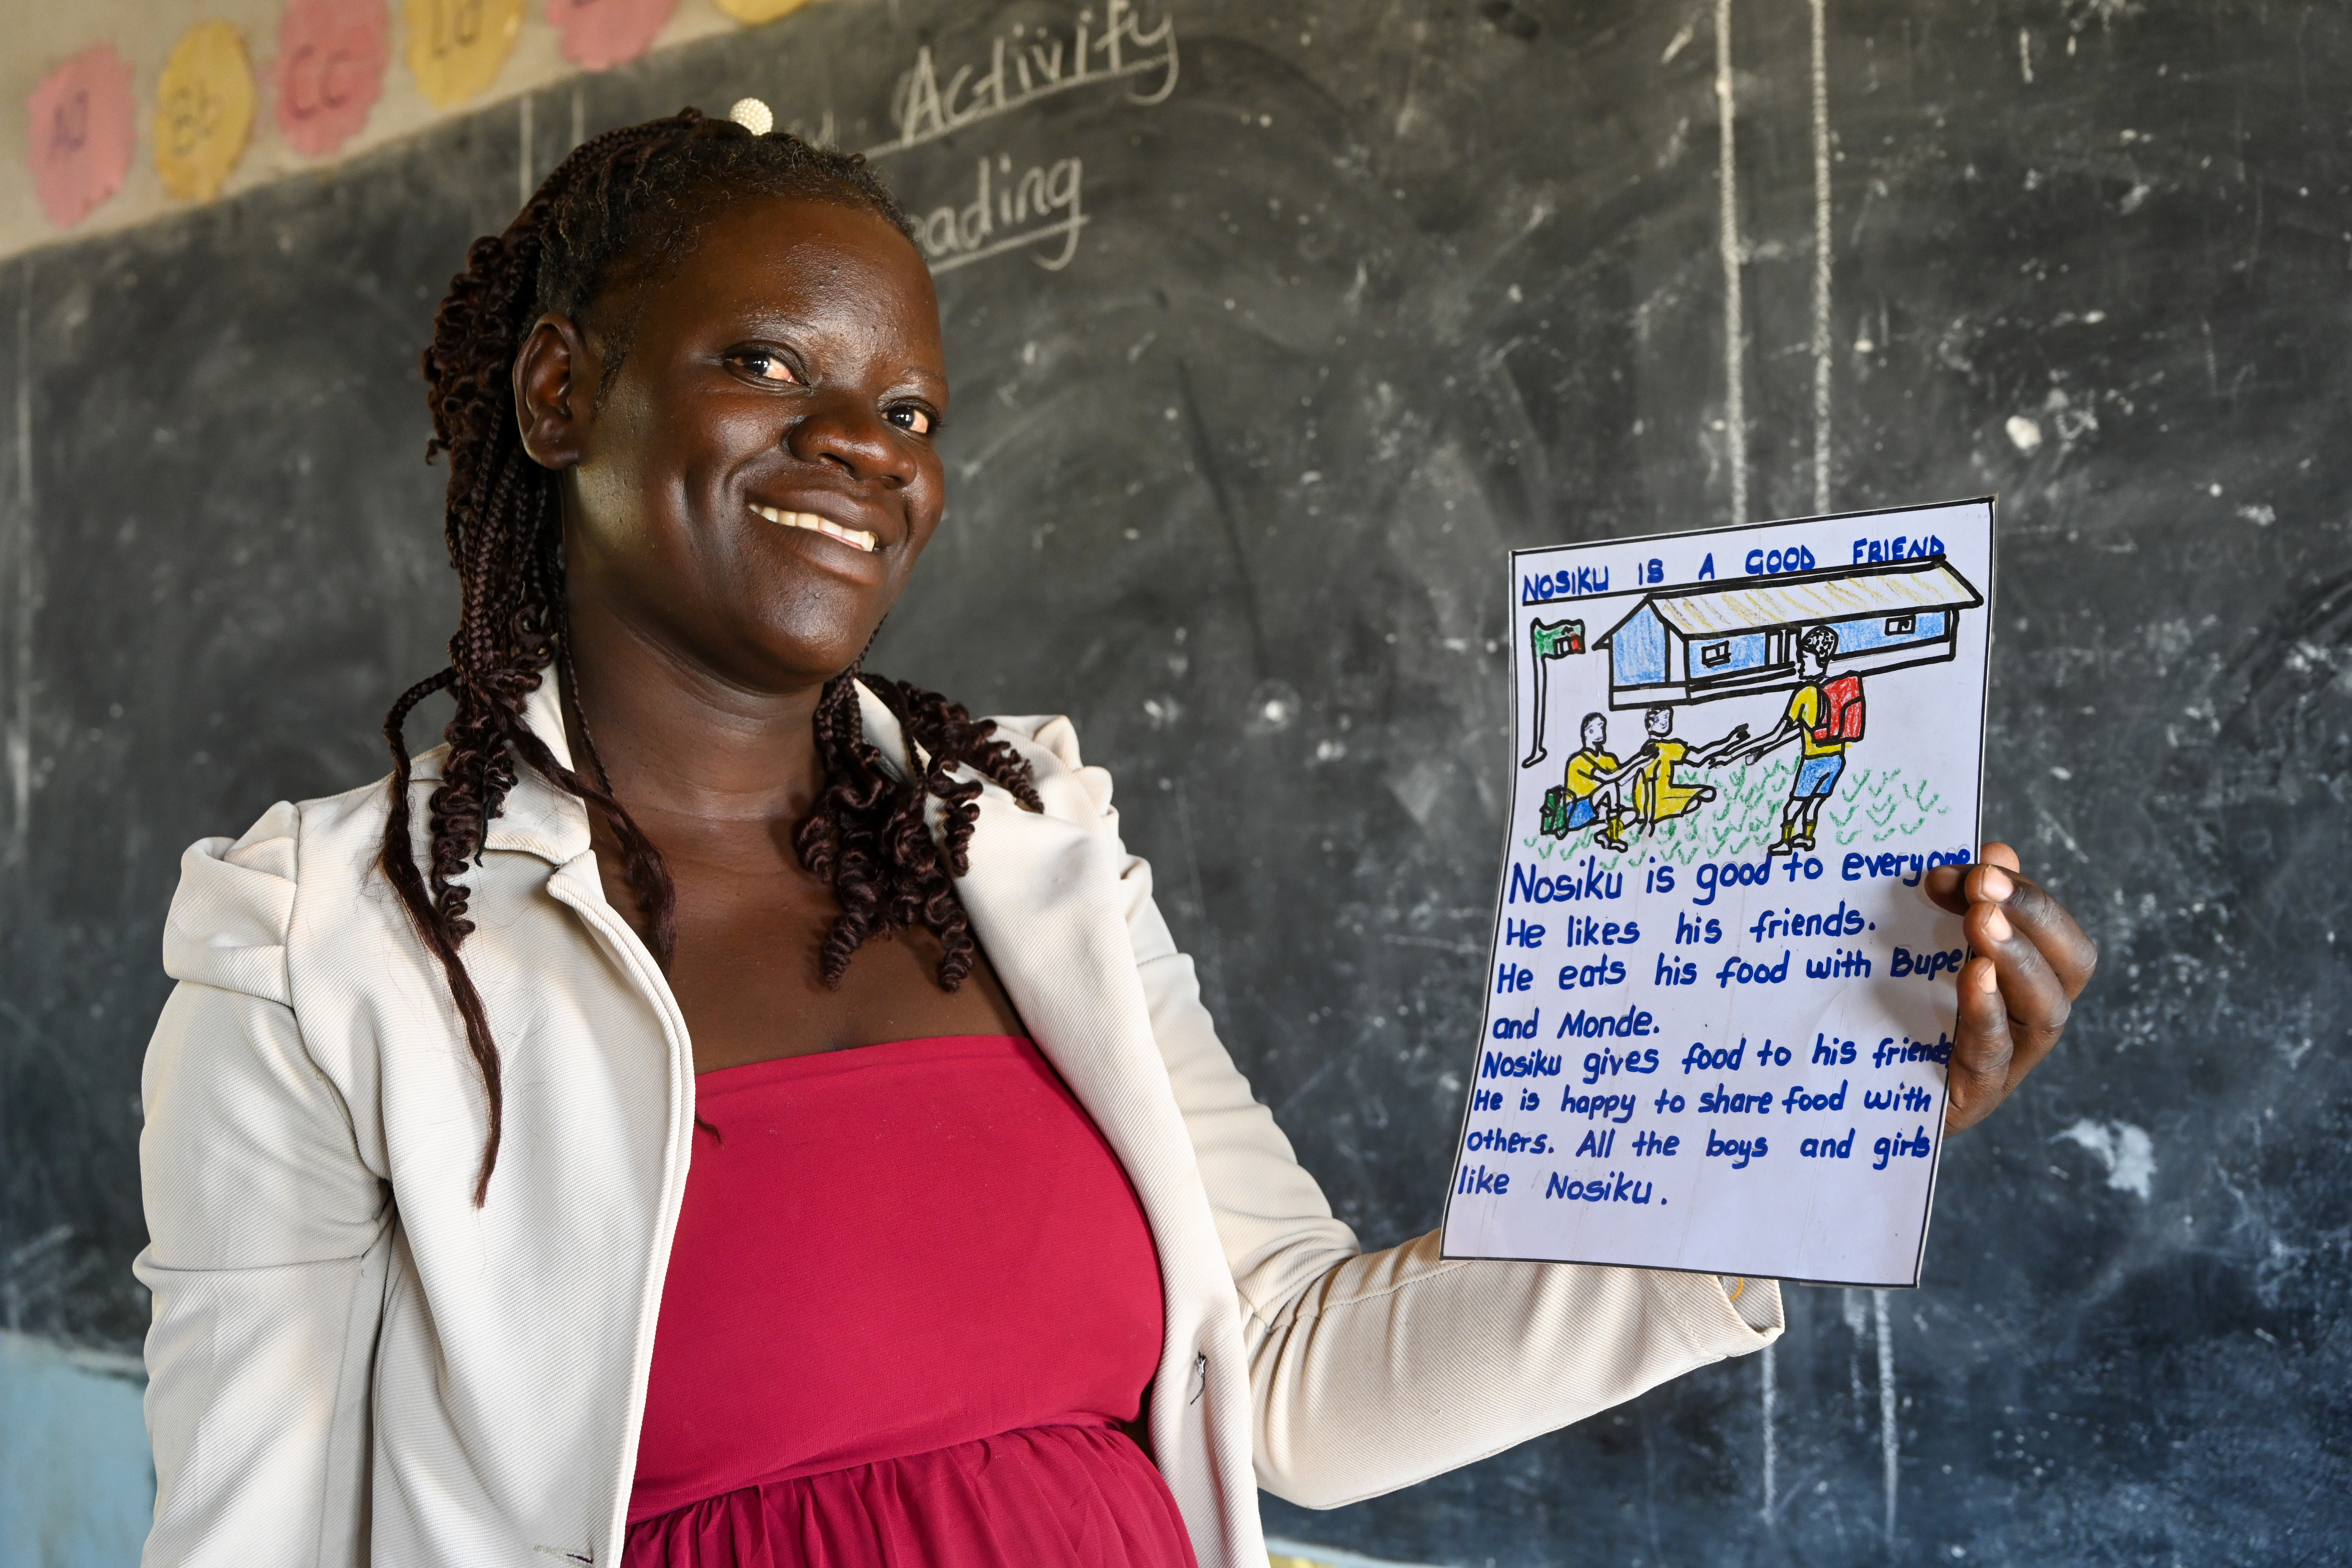 Aa
Bb
Cc
Dd
Activity
eading
NOSIKU IS A GOOD FRIEND
Nosiku is good to everyone
He likes his friends.
He eats his food with Bupe
and Monde.
Nosiku gives food to his friends
He is happy to share food with
others. All the boys and girls
like Nosiku.